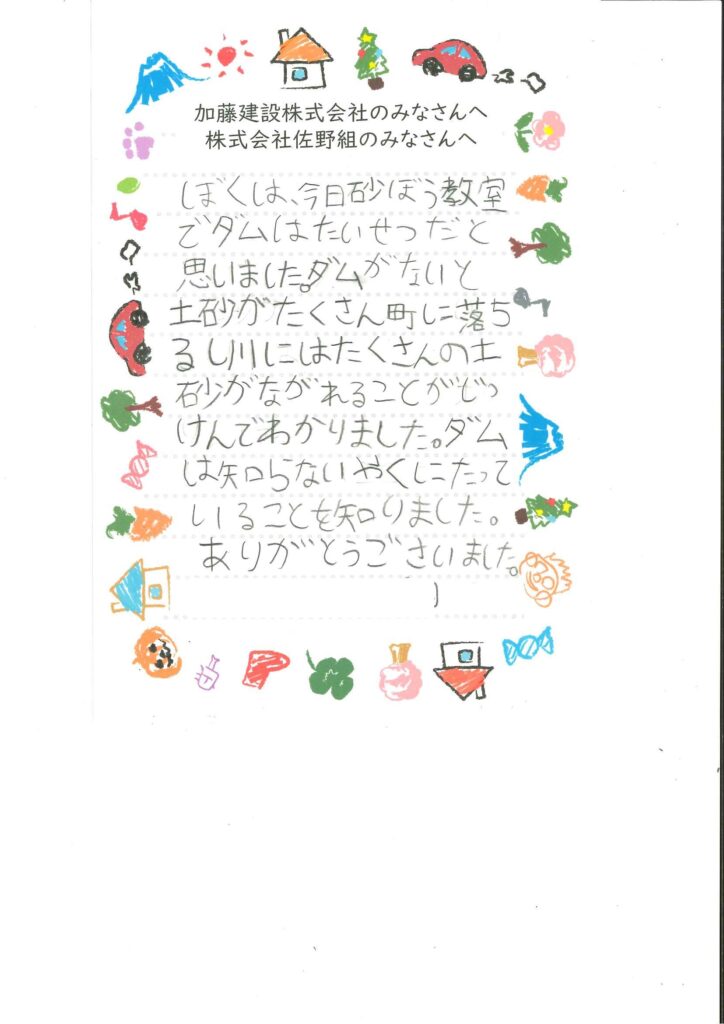 加藤建設株式会社のみなさんへ
株式会社佐野組のみなさんへ
ぼくは、今日砂ぼう教室
でダムはたいせつだと
思いました。ダムがないと
土砂がたくさん町に落ち
るし川にはたくさんの土
砂がながれることがじっ
けんでわかりました。ダム
は知らないやくにたって
いることを知りました。
ありがとうございました。